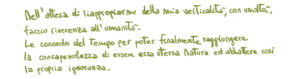 Nell'attesa di riappropriarme della mia verticalità, con umiltà,
faccio riverenza all'umanità.
Le concedo del tempo per poter finalmente raggiungere
la consapevolezza di essere essa stessa Natura ed abbattere così
la propria ignoranza.